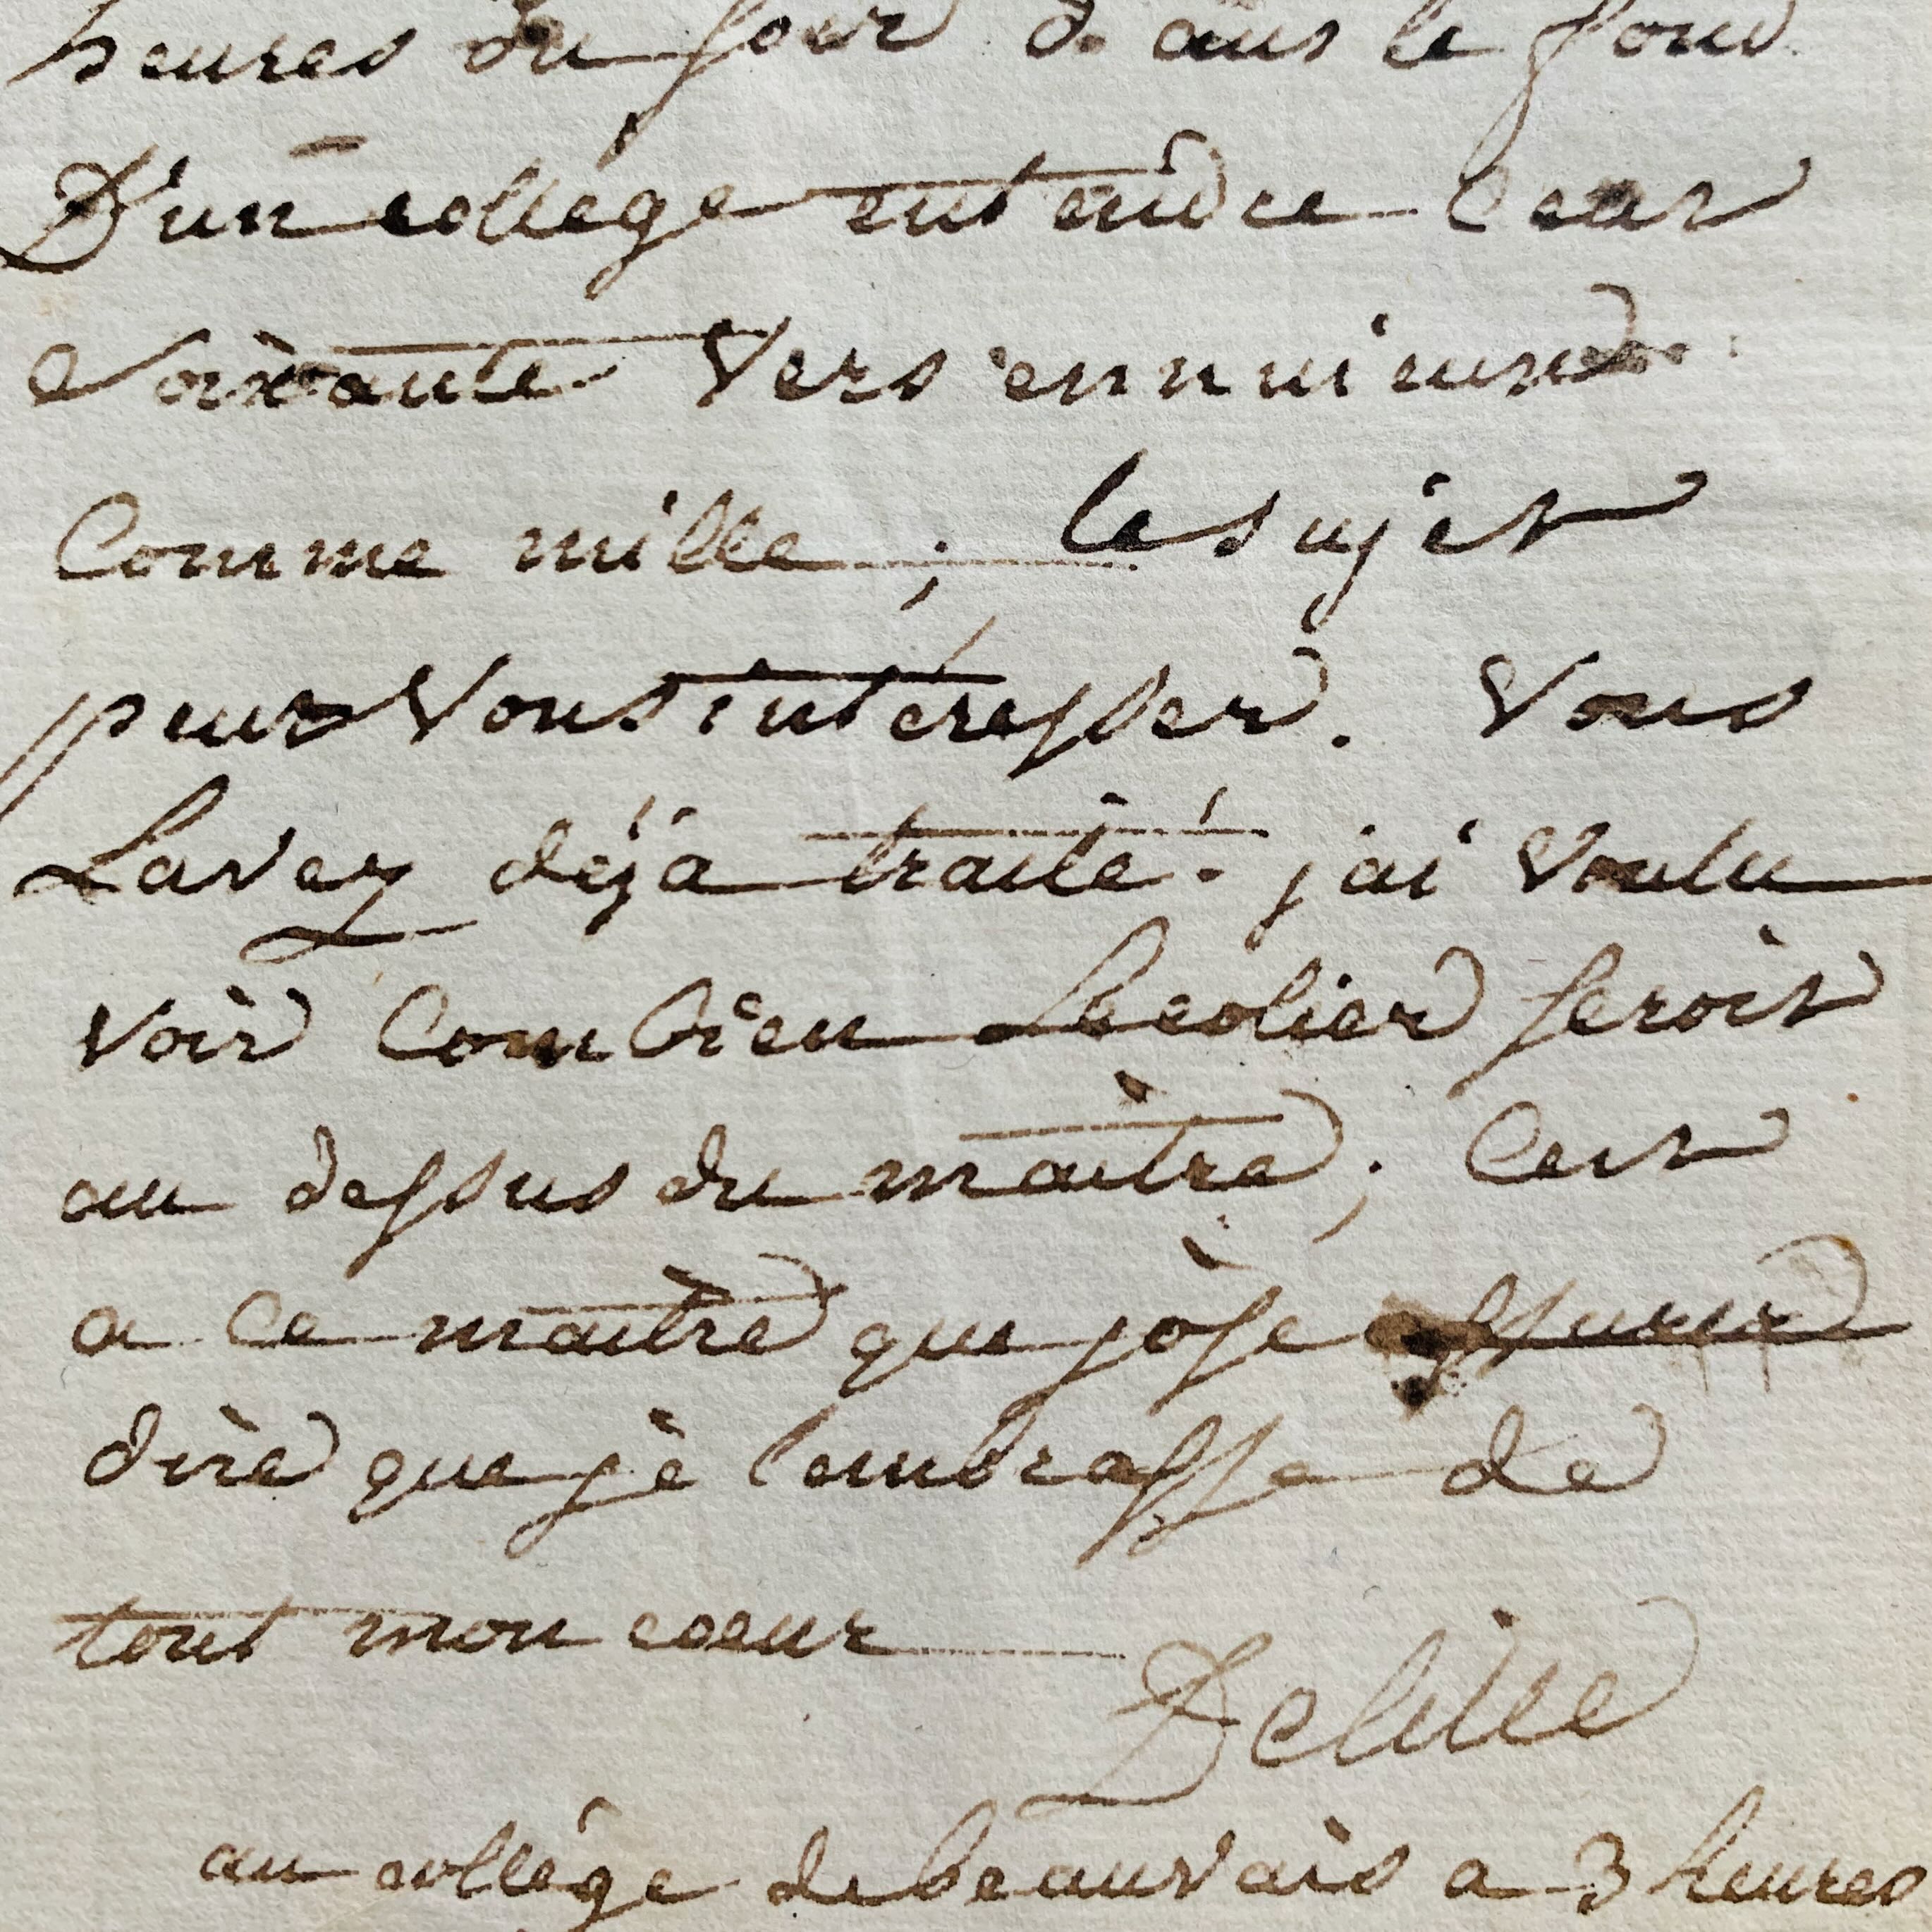 heures du soir dans le fond
D'un collège entendre cent
Soixante vers ennuieux
Comme mille ; le sujet
peut vous intéresser. Vous
Lavez déja traité. jai voulu
voir Combien Lecolier seroit
au dessus du maitre ; Cest
a Ce maitre que jose
dire que je lembrasse de
tout mon coeur
Delille
au collége de beauvais a 3 heures